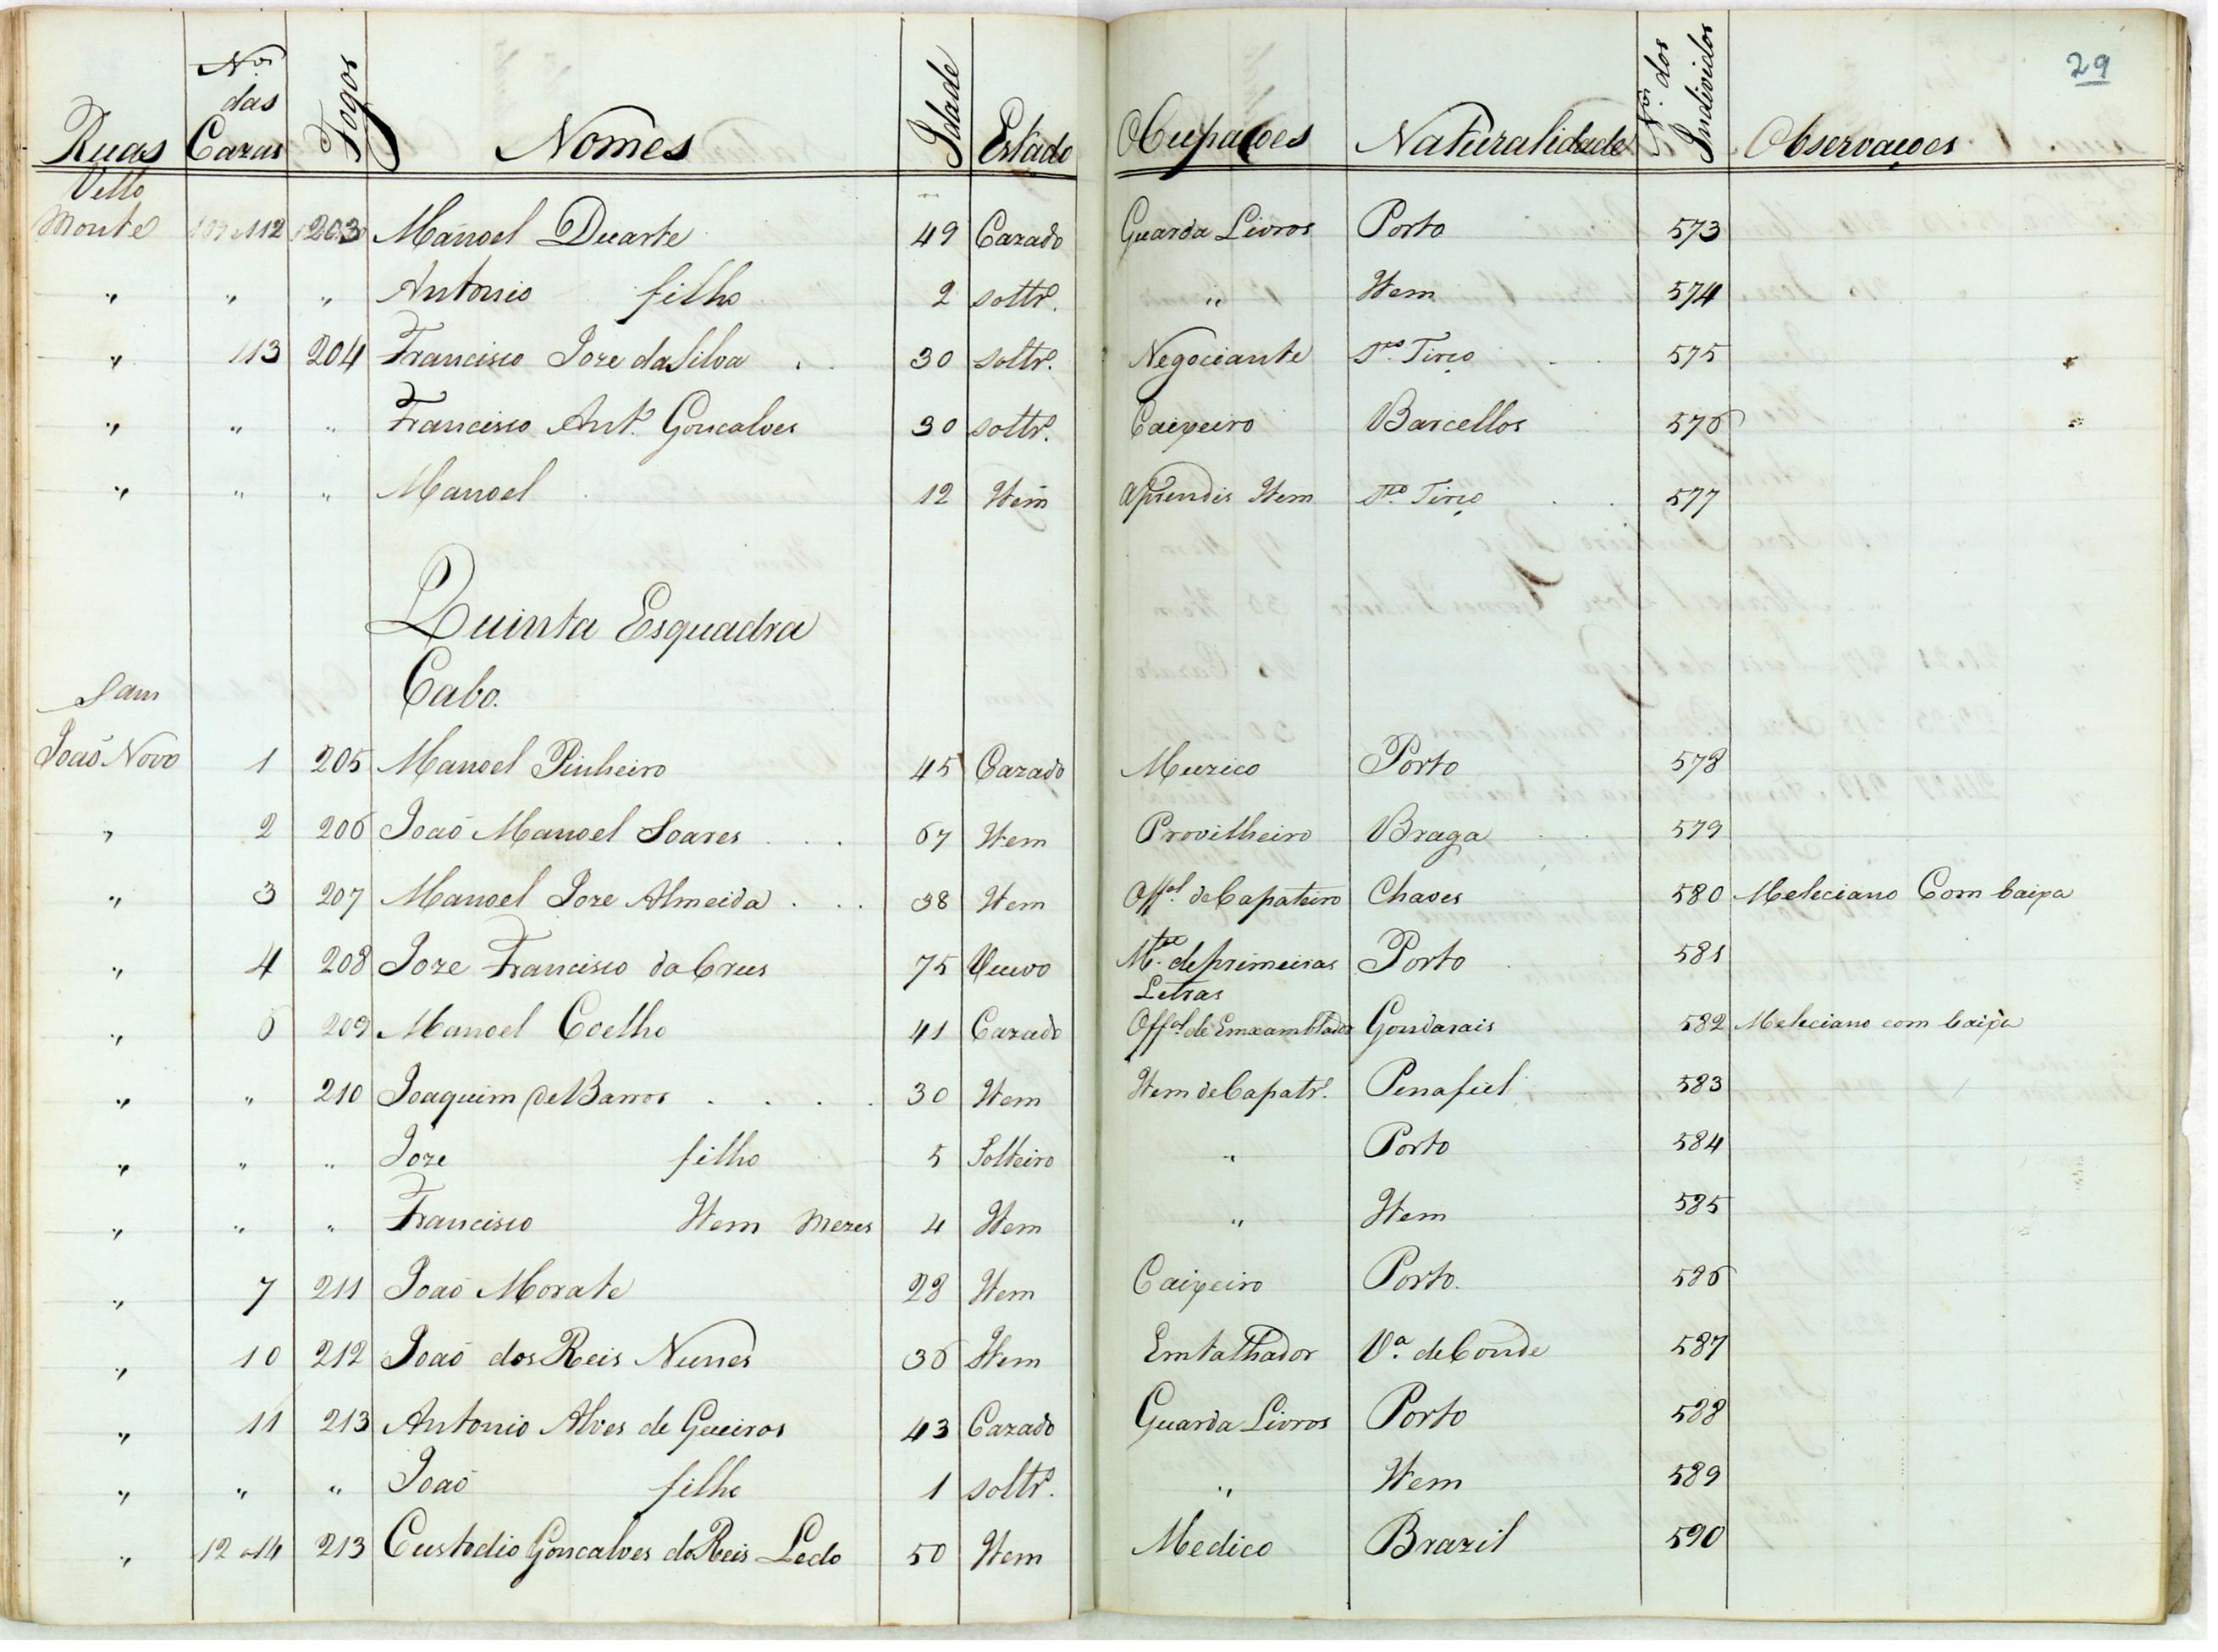 29
Ruas Nos das Cazas Fogos Nomes Idade Estado Ocupacoes Naturalidade Nos. dos Individos Observaçoes
Bello
Monte 109 a 112 203 Manoel Duarte 49 Cazado Guarda Livros Porto 573
" " " Antonio filho 2 soltro. " Item 574
" 113 204 Francisco Joze da Silva 30 soltro. Negociante Sto. Tirço 575
" " " Francisco Anto. Goncalves 30 soltro. Caixeiro Barcellos 576
" " " Manoel 12 Item aprendis Item Sto. Tirço 577
Quinta Esquadra
Cabo.
Sam
João Novo 1 205 Manoel Pinheiro 45 Cazado Muzico Porto 578
" 2 206 João Manoel Soares 67 Item Provilheiro Braga 579
" 3 207 Manoel Joze Almeida 38 Item Offal. de Capateiro Chaves 580 Meleciano Com baixa
" 4 208 Joze Francisco da Crus 75 Veuvo Mte. de primeiras Letras Porto 581
" 6 209 Manoel Coelho 41 Cazado Offal. de Emxamblador Gondarais 582 Meleciano com baixa
" " 210 Joaquim de Barros 30 Item Item de Capatro. Penafiel 583
" " " Joze filho 5 Solteiro " Porto 584
" " " Francisco Item Mezes 4 Item " Item 585
" 7 211 João Morate 28 Item Caixeiro Porto. 586
" 10 212 João dos Reis Nunes 36 Item Emtalhador Va. de Conde 587
" 11 213 Antonio Alves de Gueiros 43 Cazado Guarda Livros Porto 588
" " " João filho 1 soltro. " Item 589
" 12 a 14 213 Custodio Goncalves do Reis Ledo 50 Item Medico Brazil 590